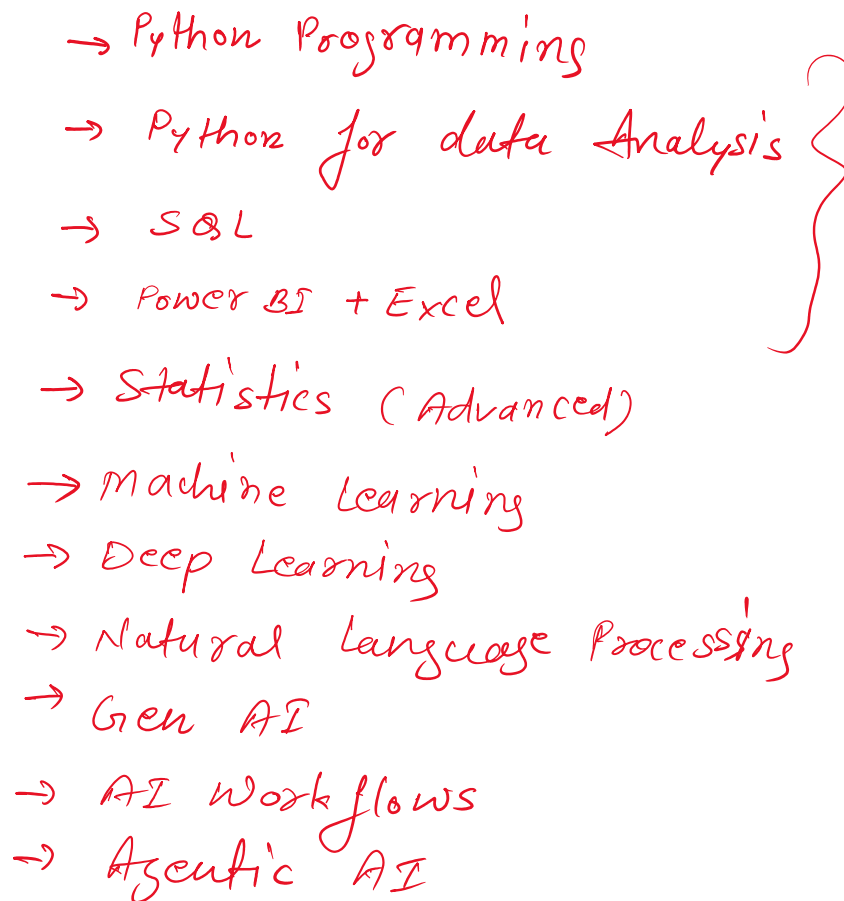 → Python Programming
→ Python for data Analysis
→ SQL
→ Power BI + Excel
→ Statistics (Advanced)
→ Machine Learning
→ Deep Learning
→ Natural Language Processing
→ Gen AI
→ AI Workflows
→ Agentic AI